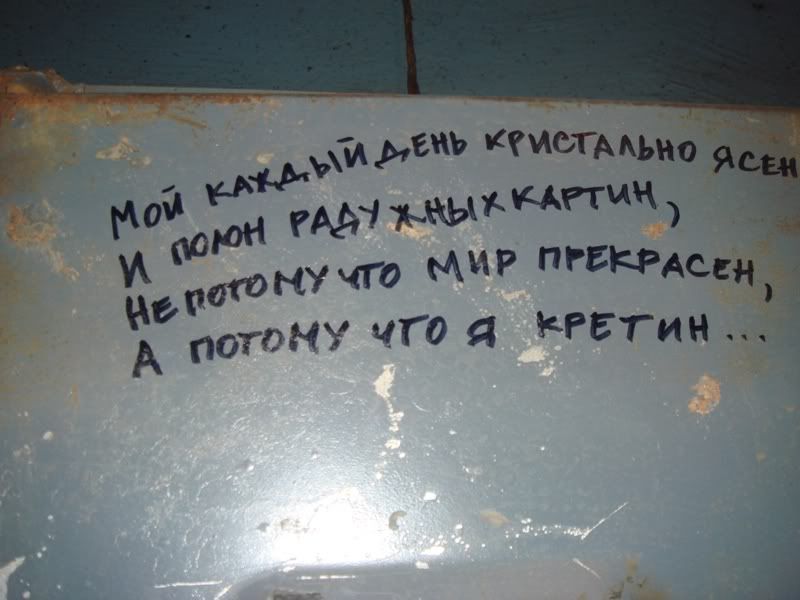 МОЙ КАЖДЫЙ ДЕНЬ КРИСТАЛЬНО ЯСЕН
И ПОЛОН РАДУЖНЫХ КАРТИН,
НЕ ПОТОМУ ЧТО МИР ПРЕКРАСЕН,
А ПОТОМУ ЧТО Я КРЕТИН...